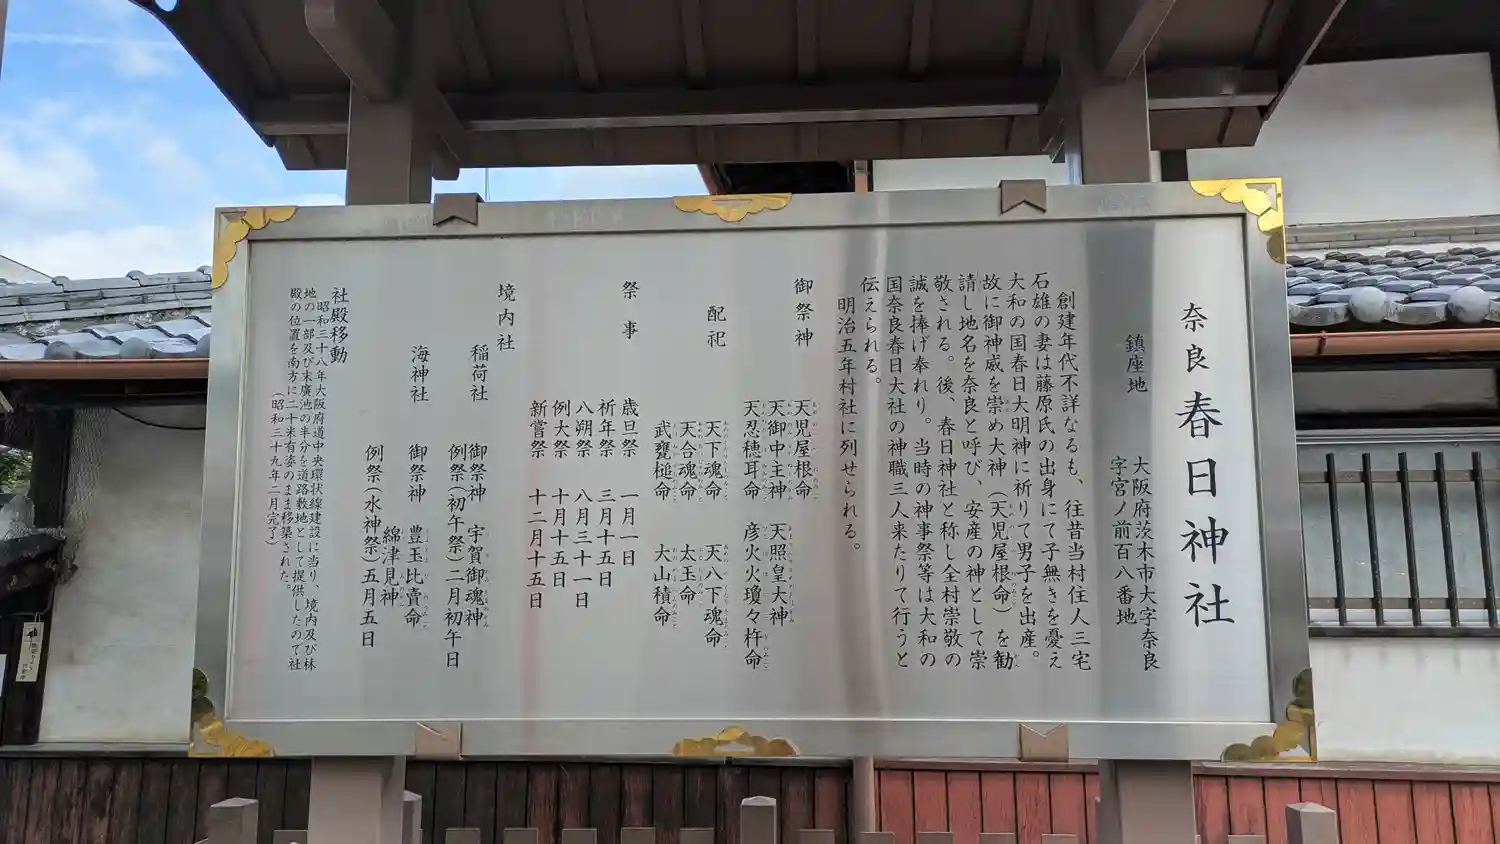 奈良 春日神社
鎮座地
大阪府茨木市大字奈良
字宮ノ前百八番地
創建年代不詳なるも、往昔当村住人三宅
石雄の妻は藤原氏の出身にて子無きを憂え
大和の国春日大明神に祈りて男子を出産。
故に御神威を崇め大神（天児屋根命）を勧
請し地名を奈良と呼び、安産の神として崇
敬される。後、春日神社と称し全村崇敬の
誠を捧げ奉れり。当時の神事祭等は大和の
国奈良春日大社の神職三人来たりて行うと
伝えられる。
明治五年村社に列せられる。
御祭神
天児屋根命
天御中主神 天照皇大神
天忍穂耳命 彦火火瓊々杵命
配祀
天下魂命 天八下魂命
天合魂命 太玉命
武甕槌命 大山積命
祭事
歳旦祭 一月一日
祈年祭 三月十五日
八朔祭 八月三十一日
例大祭 十月十五日
新嘗祭 十二月十五日
境内社
稲荷社
御祭神 宇賀御魂神
例祭（初午祭）二月初午日
海神社
御祭神 豊玉比賣命
綿津見神
例祭（水神祭）五月五日
社殿移動
昭和三十八年大阪府道中央環状線建設に当り、境内及び林
地の一部及び末廣池の半分を道路敷地として提供したので社
殿の位置を南方に二十米有姿のまま移築された。
（昭和三十九年二月完了）